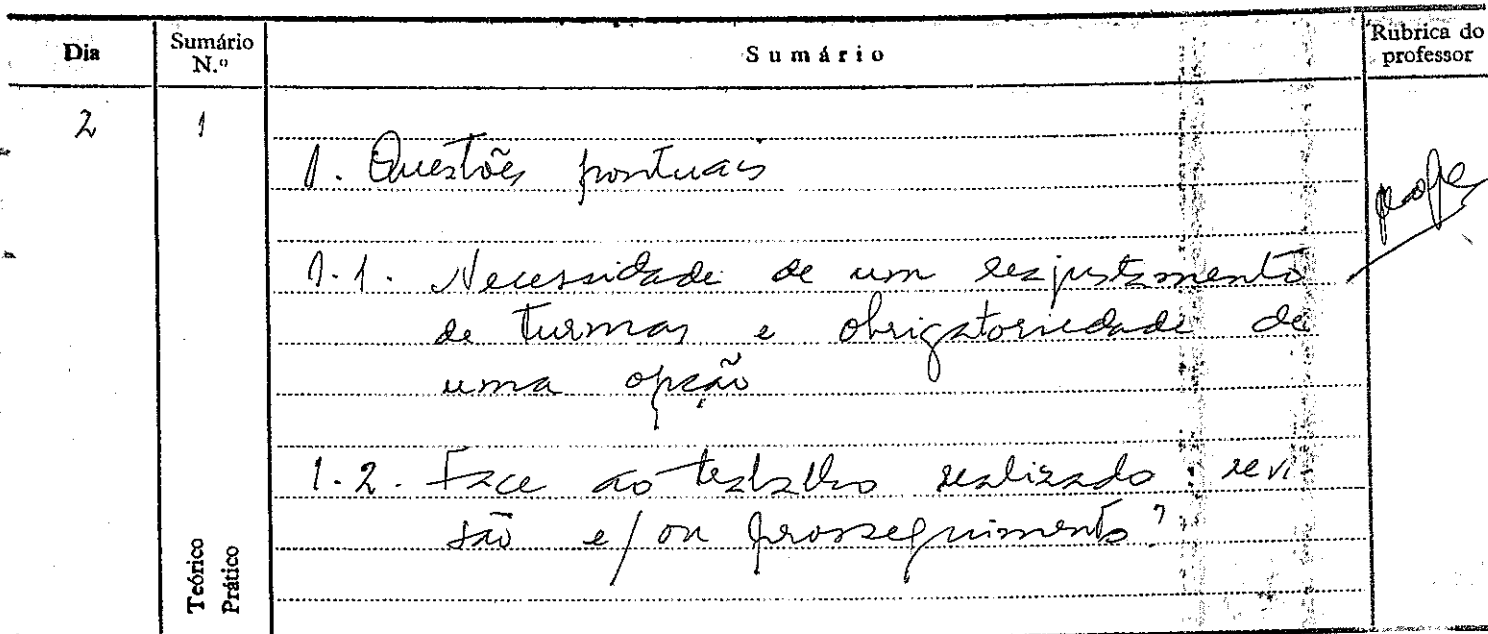 Dia Sumário N.º Sumário Rubrica do professor
2 1
1. Questões pontuais
1.1. Necessidade de um reajustamento
de turmas e obrigatoriedade de
uma opção
1.2. Face ao trabalho realizado revi-
são e/ou prosseguimento?
Teórico
Prático